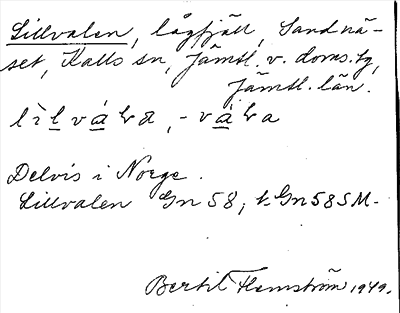 Lillvalen, lågfjäll, Sandnä-
set, Kalls sn, Jämtl. v. doms.tg,
Jämtl. län.
lìlvála, -vála
Delvis i Norge.
Lillvalen Gn 58, k. Gn 58 SM.
Bertil Flemström 1949.